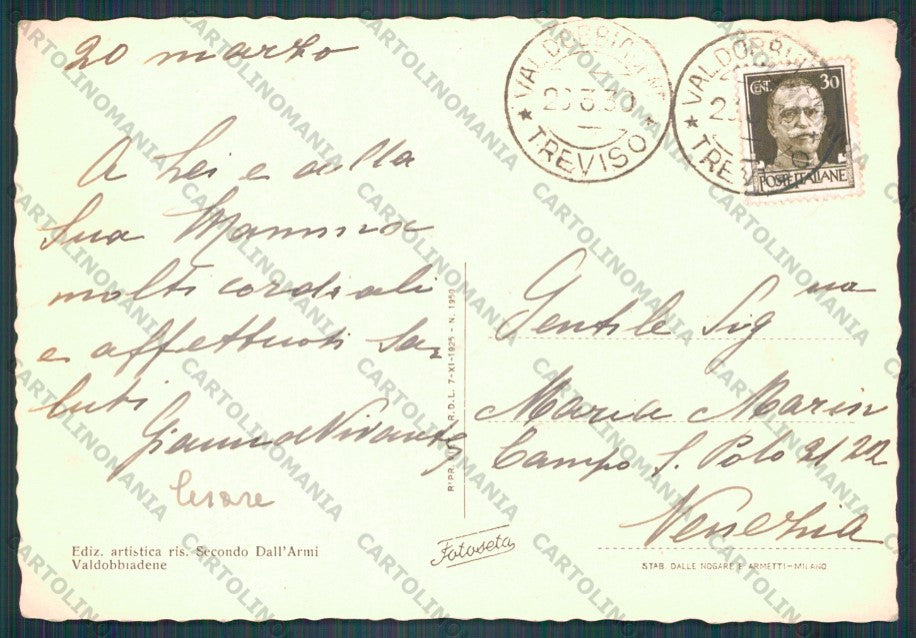 20 marzo
A Lei e alla
Sua Mamma
molti cordiali
e affettuoti sa-
luti
Gianna Vivante
Cesare
Ediz. artistica ris. Secondo Dall'Armi
Valdobbiadene
R.D.L. 7-XI-1925 - N. 1950
Fotoseta
VALDOBBIADENE
20.3.30
TREVISO
VALDOBBIADENE
TREVISO
CENT. 30
POSTE ITALIANE
Gentile Sig na
Maria Marin
Campo S. Polo 2122
Venezia
STAB. DALLE NOGARE E ARMETTI-MILANO
CARTOLINOMANIA